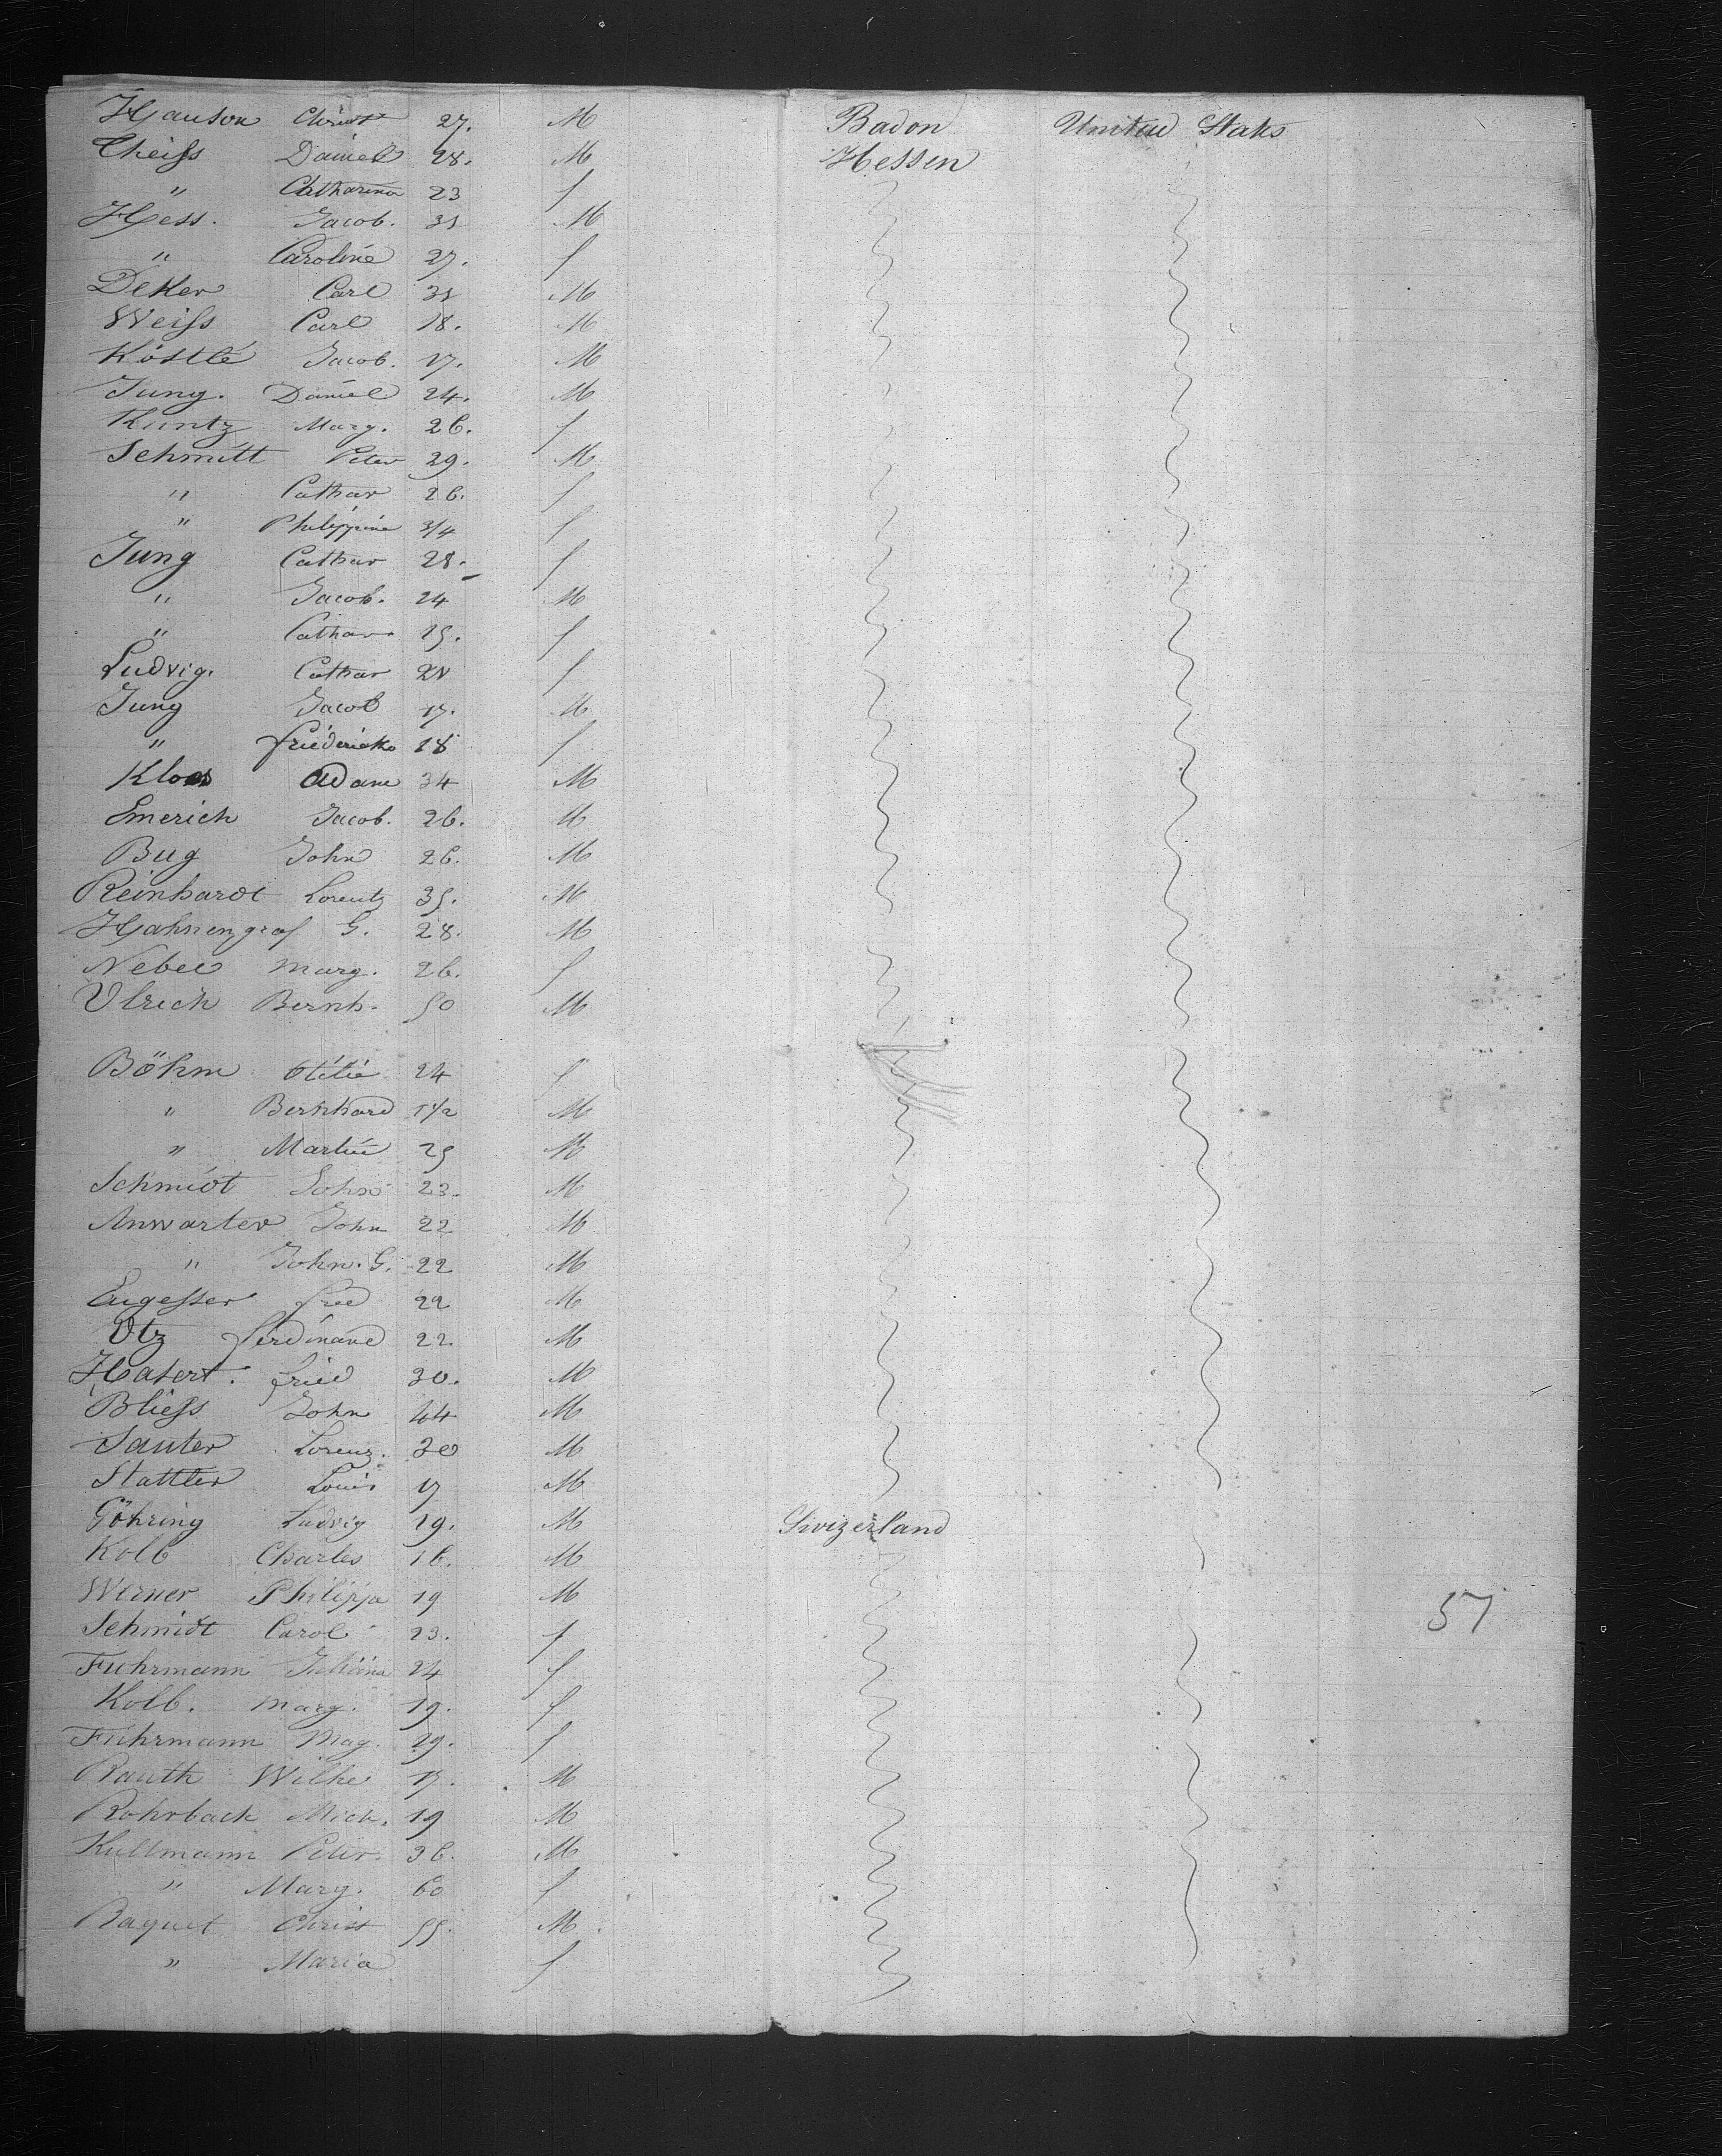 Hauson Christ 27. M Badon United Staks
Theiss Daniel 28. M Hessen
" Catharina 23 f
Hess. Jacob. 31 M
" Caroline 27. f
Deker Carl 31 M
Weiss Carl 18. M
Köstle Jacob. 17. M
Jung. Daniel 24. M
Kuntz Marg. 26. f
Schmitt Peter 29. M
" Cathar 26. f
" Philippine 3/4 f
Jung Cathar 28. f
" Jacob. 24 M
" Cathar 15. f
Ludvig. Cathar 21 f
Jung Jacob 17. M
" friedericke 18 f
Kloos Adam 34 M
Emerich Jacob. 26. M
Bug John 26. M
Reinhardt Lorentz 35. M
Hahnengraf G. 28. M
Nebel Marg. 26. f
Ulrich Bernh. 50 M
Böhm Otilie 24 f
" Bernhard 1 1/2 M
" Martin 25 M
Schmidt John 23. M
Anwarter John 22 M
" John. G. 22 M
Engesser fried 22 M
Utz ferdinand 22. M
Hasert. fried 30. M
Bliess John 44 M
Sauter Lorenz. 30 M
Stattler Louis 17 M
Göhring Ludvig 19. M Swizerland
Kolb Charles 16. M
Werner Philipp 19 M
57
Schmidt Carol 23. f
Fuhrmann Juliana 24 f
Kolb. Marg. 19. f
Fuhrmann Mag. 29. f
Rauth Wilhe 17. M
Rohrback Mich. 19 M
Kullmann Peter. 36. M
" Marg. 60 f
Baquet Christ 55. M
" Maria f